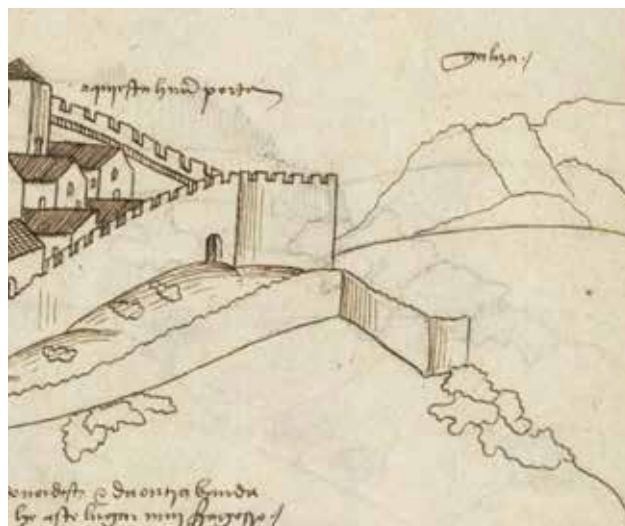 aquesta hũa porta
galiza
da outra banda
he este lugar muj fragosso